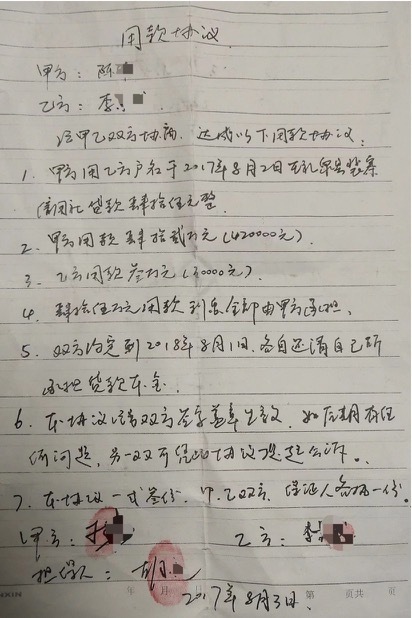 用款协议
甲方：陈
乙方：李
经甲乙双方协商，达成以下用款协议：
1. 甲方用乙方户名于2017年8月2日在
信用社贷款肆拾伍万整
2. 甲方用款肆拾贰万元(420000元).
3. 乙方用款叁万元(30000元)
4. 肆拾伍万元用款利息全部由甲方承担.
5. 双方约定到2018年8月1日各自还清自己所
承担贷款本金.
6. 本协议经双方签字盖章生效，如后期有任
何问题，另一双可凭此协议提起公诉。
7. 本协议一式叁份，甲、乙双方、保证人各执一份。
甲方：
乙方：李
担保人：
2017年8月3日.
年 月 第 页共 页